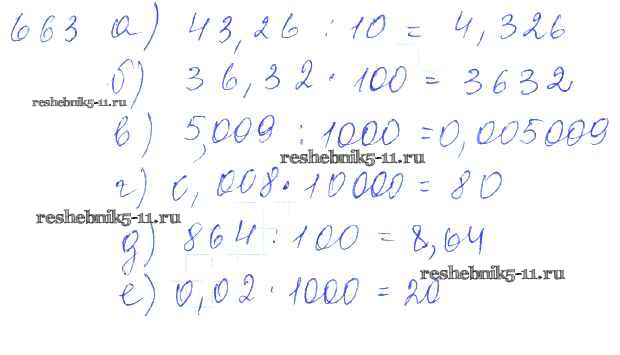 663 а) 43,26 : 10 = 4,326
б) 36,32 · 100 = 3632
reshebnik5-11.ru
в) 5,009 : 1000 = 0,005009
reshebnik5-11.ru
г) 0,008 · 10000 = 80
reshebnik5-11.ru
д) 864 : 100 = 8,64
reshebnik5-11.ru
е) 0,02 · 1000 = 20